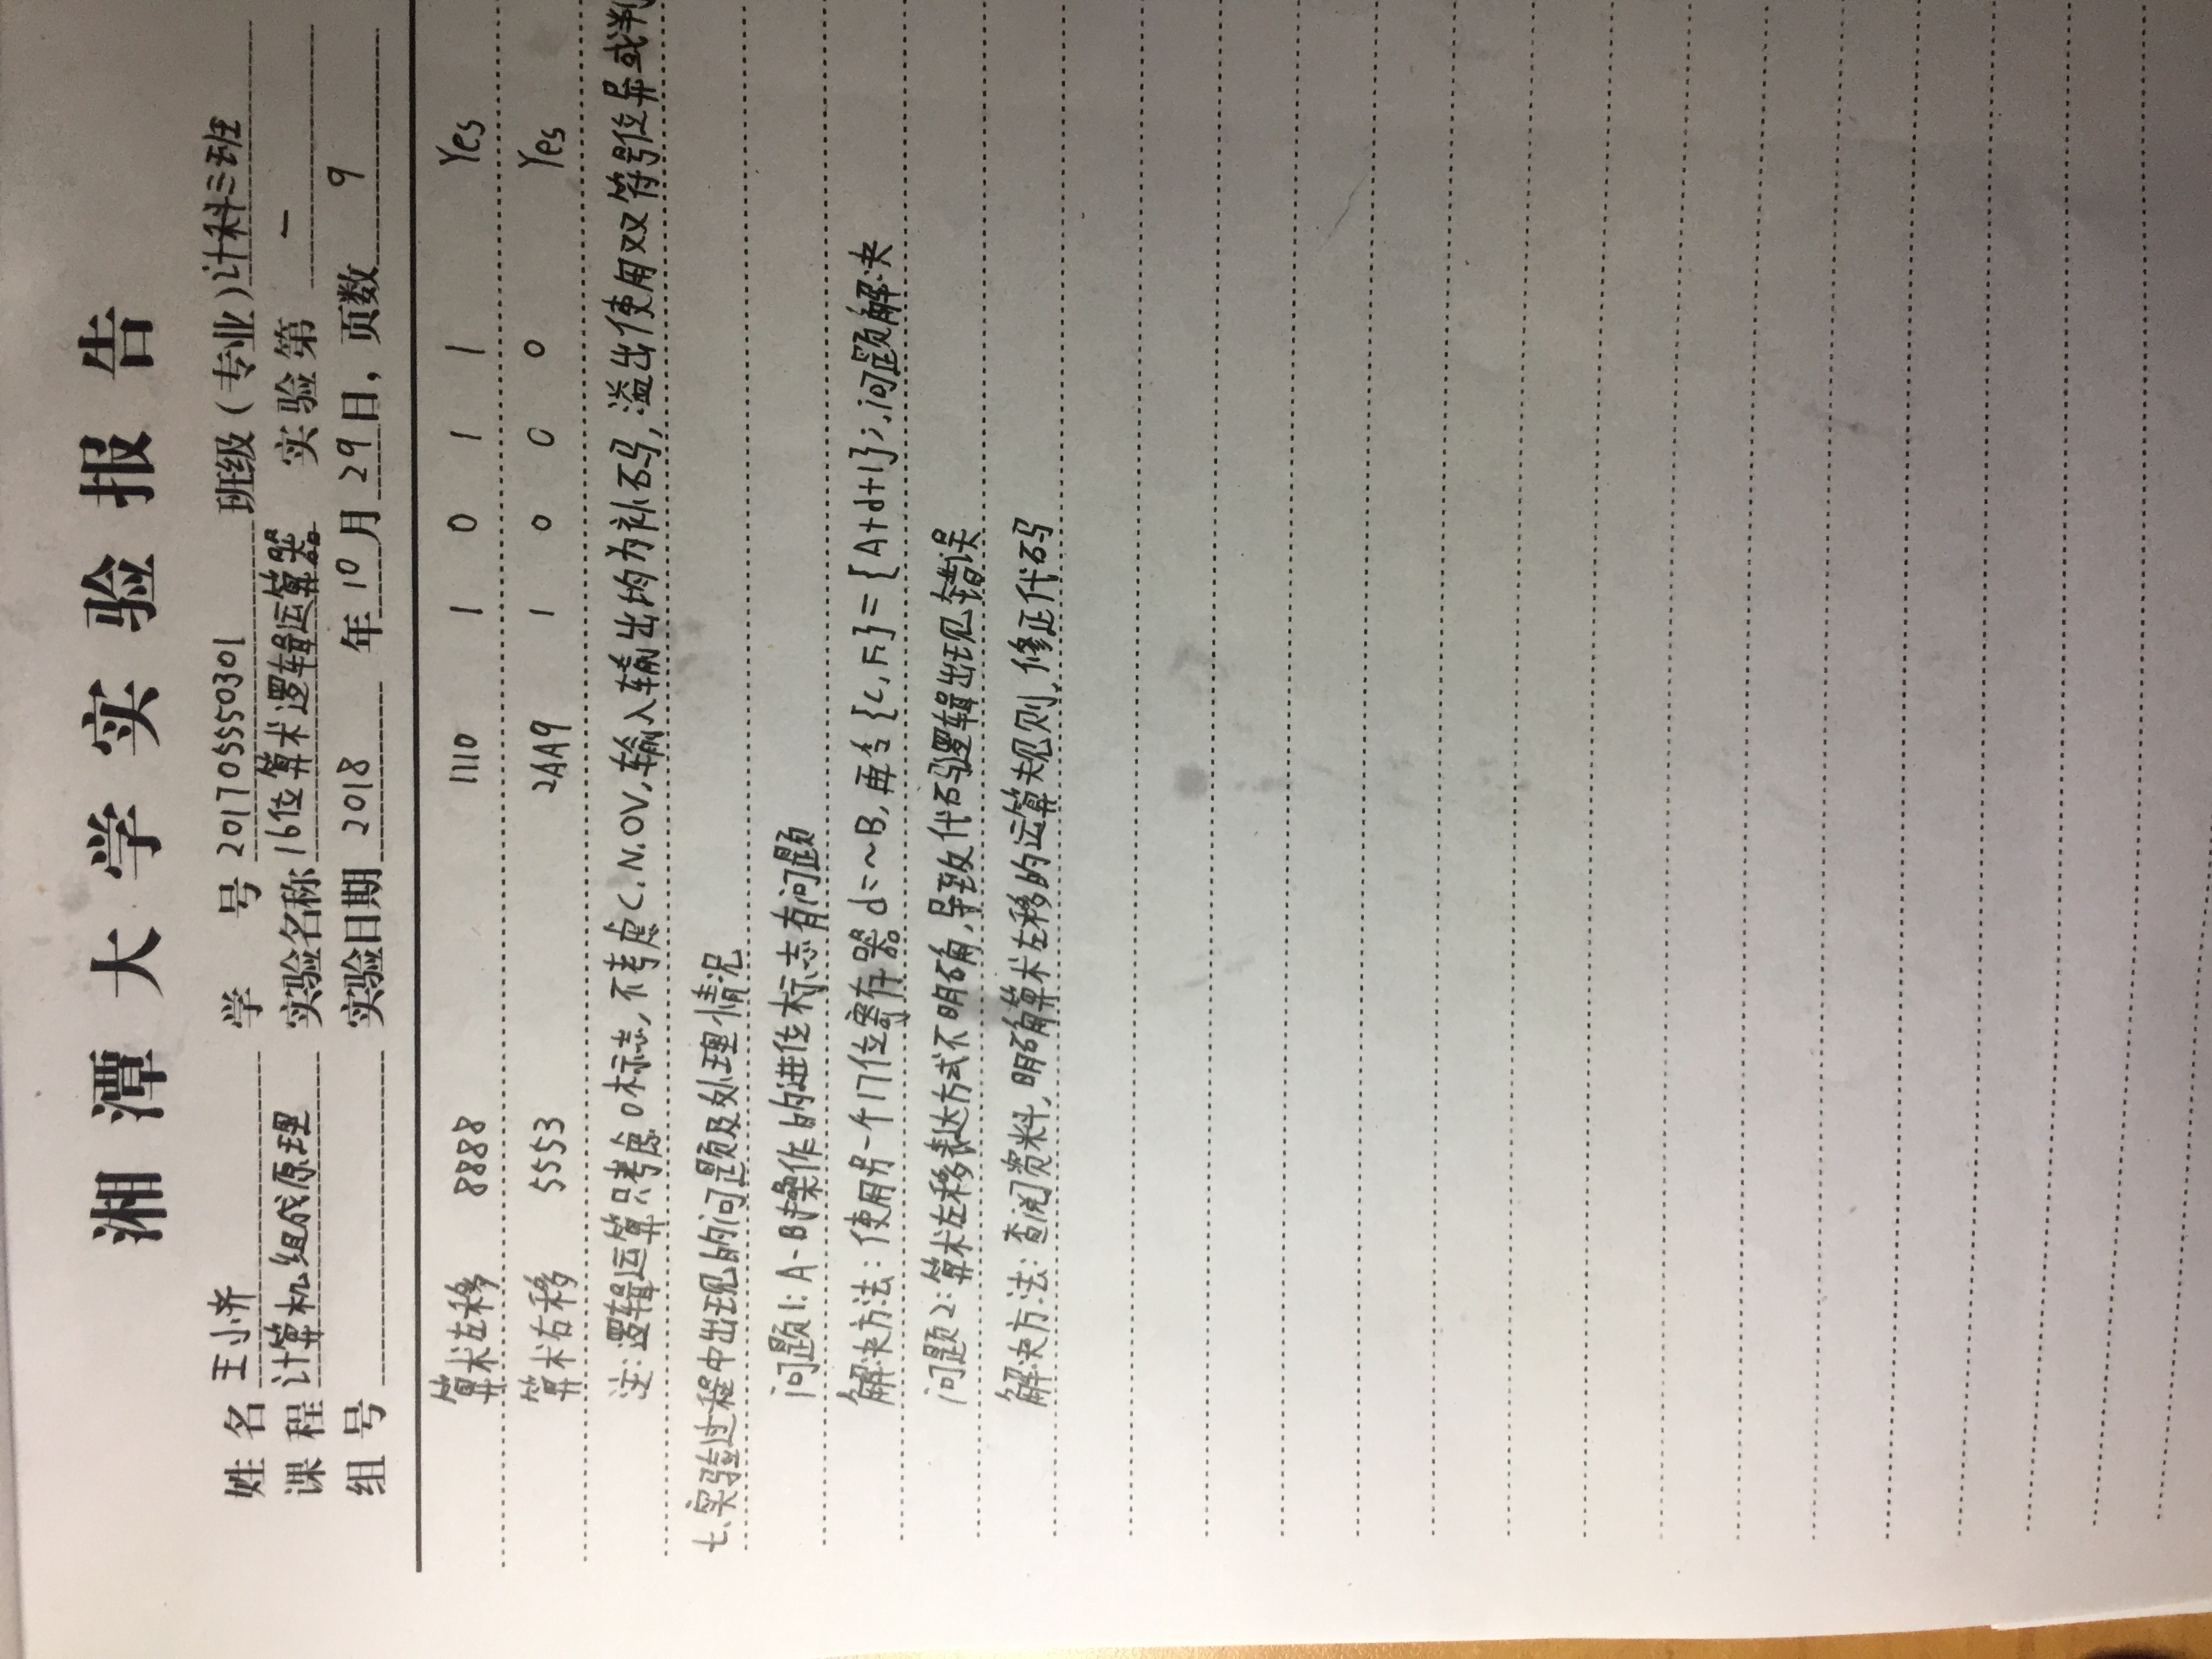 湘潭大学实验报告
姓名 王小齐 学号 201705550301 班级（专业）计科三班
课程 计算机组成原理 实验名称 16位算术逻辑运算器 实验第 一
组号 实验日期 2018 年 10 月 29 日，页数 9
算术左移 8888 1110 1 0 1 1 Yes
算术右移 5553 2AA9 1 0 0 0 Yes
注:逻辑运算只考虑0标志,不考虑C.N.OV,输入输出均为补码,溢出使用双符号位异或判
七.实验过程中出现的问题及处理情况
问题1:A-B操作的进位标志有问题
解决方法:使用另一个17位寄存器d=~B,再令{C,F}={A+d+1};问题解决
问题2:算术左移表达方式不明确,导致代码逻辑出现错误
解决方法:查阅资料,明确算术左移的运算规则,修正代码